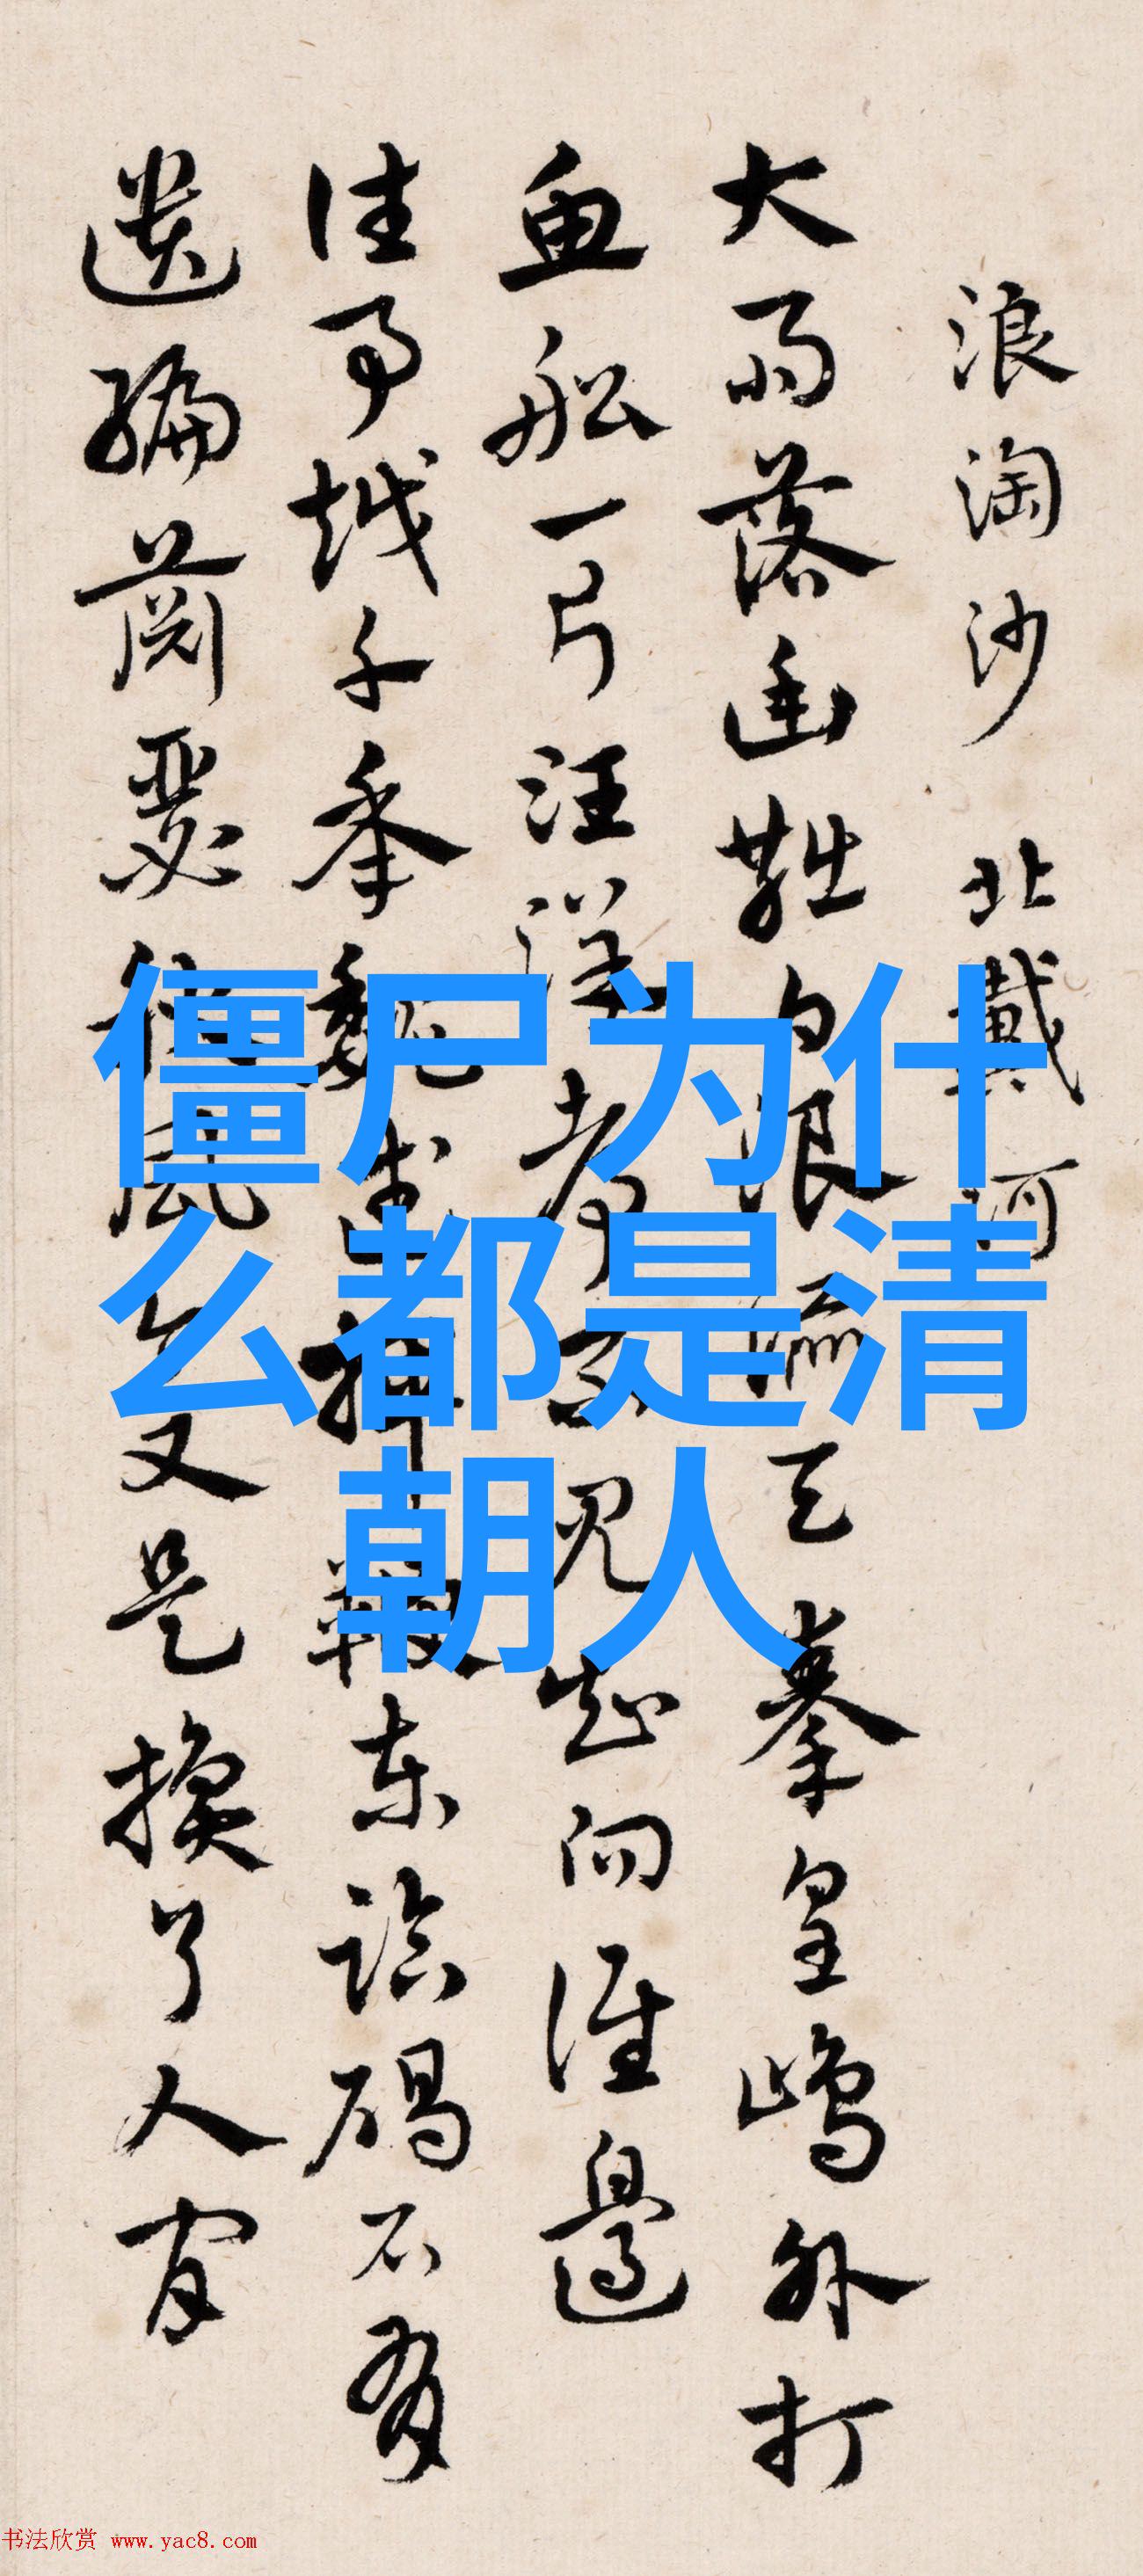 浪淘沙 北戴河
大雨落幽燕白浪滔天秦皇島外打
魚船一片汪洋都不見知向誰邊
往事越千年魏武揮鞭東臨碣石有
遺編蕭瑟秋風今又是換了人間
僵尸为什
么都是清
朝人
书法欣赏 www.yac8.com